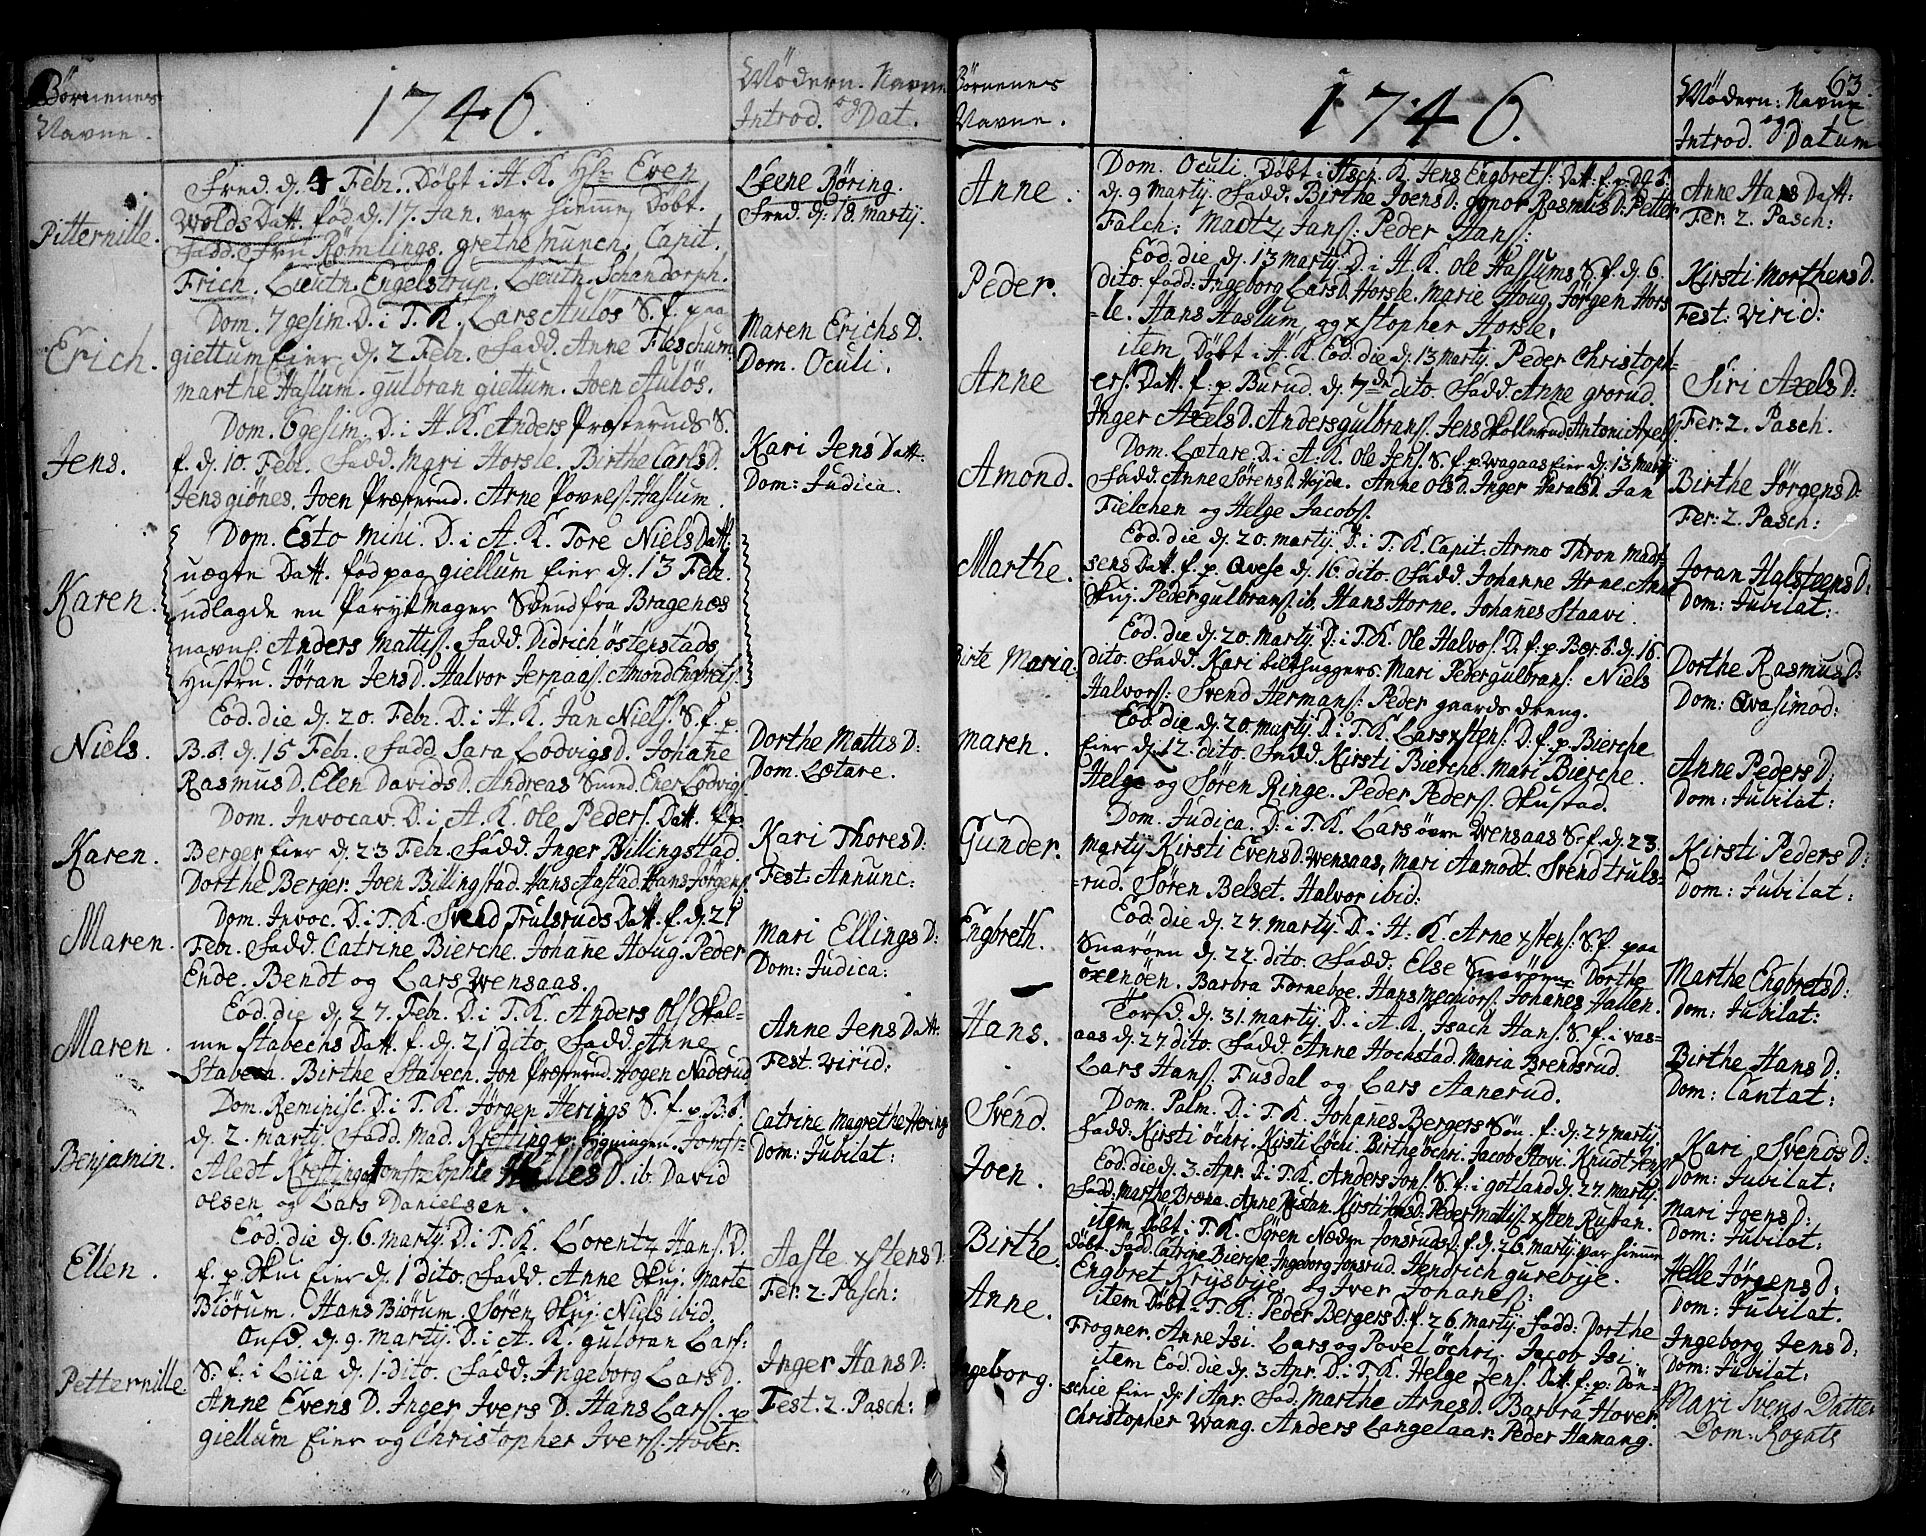 Børnenes
Navne.
1746.
Mödern. Navne
Introd. og Dat.
Pitternille.
Fred. d. 4 Febr. Döbt i H. K. Hr. Even
Wolds Datt. föd d. 17. Jan. var hiemme Döbt.
Fadd. Fru Römlings. grethe munch. Capit.
Frich. Lieutn. Engelstrup. Lieutn. Schandorph.
Leene Röring.
Fred. d. 18 martij.
Erich.
Dom. 7gesim. D. i T. K. Lars Aulös S. f. paa
giettum Eier d. 2 Febr. Fadd. Anne Fleschum
marthe Haslum. gulbran giettum. Joen Aulös.
Maren Erichs D.
Dom. Oculi.
Jens.
Dom. 6gesim. D. i H. K. Anders Præsteruds S.
f. d. 10. Febr. Fadd. Mari Horsle. Birthe Carls D.
Jens giönes. Joen Præsterud. Arne Povels. Haslum.
Kari Jens Datt.
Dom: Judica.
Karen.
Dom. Esto mihi. D. i H. K. Tore Niels Datt.
uægte Datt. föd paa giellum Eier d. 13 Febr.
udlagde en Parykmager Svend fra Bragenæs
navnl. Anders Mattis. Fadd. Didrich östenstads
Hustru. Jöran Jens D. Halvor Jerpaas. Amond Engbrets.
Niels.
Eod. die d. 20. Febr. D. i H. K. Jan Niels. S. f. p.
B. b. d. 15 Febr. Fadd. Sara Lodvigs D. Johane
Rasmus D. Elen Davids D. Andreas Smed. Ener Lodvigs.
Dorthe Mattis D:
Dom. Lætare.
Karen.
Dom. Invocav. D. i H. K. Ole Peders. Datt. f. p.
Berger Eier d. 23 Febr. Fadd. Inger Billingstad.
Dorthe Berger. Joen Billingstad. Hans Jastad. Hans Jörgens.
Kari Thores D:
Fest: Annunc:
Maren.
Dom. Invoc. D. i T. K. Svend Trulsruds Datt. f. d. 21
Febr. Fadd. Catrine Bierche. Johane Houg. Peder
Ende. Bendt og Lars Wensaas.
Mari Ellings D:
Dom: Judica:
Maren.
Eod. die d. 27. Febr. D. i T. K. Anders Ols. Skal-
me Stabechs Datt. f. d. 21 dito. Fadd. Anne
Stabech. Birthe Stabech. Jon Præsterud. Hogen Naderud
Anne Jens Datt.
Fest. Virid:
Benjamin.
Dom. Reminisc. D. i T. K. Jörgen Herings S. f. p. B. b.
d. 2. martij. Fadd. Mad. Krefting p. bygningen. Jomfr.
Aledt Krefting. Jomfr. Sophia Nilles D. ib. David
olsen og Lars Danielsen.
Catrine Magrethe Hering
Dom: Jubilat:
Ellen.
Eod. die d. 6. martij. D. i T. K. Lorentz Hans. D.
f. p. Skui Eier d. 1 dito. Fadd. Anne Skuj. Marte
Biörum. Hans Biörum. Sören Skuj. Niels ibid.
Aaste xstens D:
Fer: 2. Pasch:
Petternille
Onsd. d. 9. martij. D. i H. K. gulbran Lars:
S. f. i Liia d. 1. dito. Fadd. Ingeborg Lars D.
Anne Evens D. Inger Ivers D. Hans Lars. p.
giellum Eier og Christopher Ivers. Hover.
Inger Hans D:
Fest. 2. Pasch:
Börnenes
Navne.
1746.
63.
Mödern: Navne
Introd. og Datum
Anne.
Dom. Oculi. Döbt i Asch. K. Jens Engbrets. Datt. f. p. B. b.
d. 9 martij. Fadd. Birthe Joens D. gunor Rasmus D. Petter
Falch. Madtz Jans. Peder Hans.
Anne Hans Datt:
Fer. 2. Pasch:
Peder.
Eod. die d. 13 martij D. i H. K. Ole Haslums S. f. d. 6.
dito. fadd: Ingeborg Lars D. Horsle. Marie Houg. Jörgen Hors
-le. Hans Haslum, og xstopher Horsle.
Kirsti Morthens D.
Fest: Virid:
Anne
item Döbt i H. K. Eod. die d. 13 martij. Peder Christoph-
ers. Datt. f. p. Burud. d. 7de dito. Fadd. Anne grorud.
Inger Axels D. Anders gulbrans. Jens Skollerud. Antoni Axels.
Siri Axels D:
Fer: 2. Pasch.
Amond.
Dom. Lætare. D. i H. K. Ole Jens. S. f. p. Wagaas Eier d. 13 martij
Fadd. Anne Sörens D. Hojca. Anne Ols D. Inger Harals D. Jan
Fielchen og Helge Jacobs.
Birthe Jörgens D:
Fer: 2. Pasch:
Marthe.
Eod. die d. 20. martij. D. i T. K. Capit. Armo Thron Mad-
sens Datt. f. p. Qvese d. 16. dito. Fadd. Johanne Horne. Anne
Skuj. Peder gulbrans. ib. Hans Horne. Johanes Staavi.
Joran Halsteens D:
Dom: Jubilat:
Birte Maria
Eod. die d. 20. martij. D. i T. K. Ole Halvors. D. f. p. Bær. b. d. 16.
dito. Fadd. Kari biltsuggers. Mari Peder gulbrans: Niels
Halvors: Svend Hermans: Peder gaards dreng.
Dorthe Rasmus D:
Dom: Qvasimod:
Maren.
Eod. die d. 20. martij. D. i T. K. Lars xstens. D. f. p. Bierche
Eier d. 12. dito. Fadd. Kirsti Bierche. Mari Bierche.
Helge og Sören Ringe. Peder Peders. Skustad.
Anne Peders D:
Dom: Jubilat:
Gunder.
Dom. Judica. D. i T. K. Lars övre Wensaas S. f. d. 23.
Martij Kirsti Evens D. Wensaas, Mari Aamodt. Svend truls-
-rud. Sören Belset. Halvor ibid:
Kirsti Peders D:
Dom: Jubilat:
Engbreth.
Eod. die d. 27. martij. D. i H. K. Arne xstens: S. f. paa
Snaröen d. 22. dito. Fadd: Else Snaröen. Dorthe
oxenöen. Barbra Forneboe. Hans mechiors. Johanes Hallen.
Marthe Engbrets D:
Dom: Jubilat:
Hans.
Torsd. d. 31. martij. D. i H. K. Isach Hans. S. f. i vas-
aas d. 27 dito. Fadd. Anne Hochstad. Maria Brendsrud.
Lars Hans. Fusdal og Lars Aanerud.
Birthe Hans D:
Dom: Cantat:
Svend.
Dom. Palm. D. i T. K. Johanes Bergers Sön. f. d. 27 martij.
Fadd. Kirsti öchri. Kirsti Löchi. Birthe öchri. Jacob Stovi. Knudt Jens.
Kari Svends D:
Dom: Jubilat:
Joen.
Eod. die d. 3. Apr. D. i T. K. Anders Jons. S. f. i gotland d. 27. martij.
Fadd: Marthe Bræna. Anne Rustan. Kirsti Jens D. Peder Mattis. xsten Rustan.
Mari Joens D:
Dom: Jubilat:
Birthe.
item Döbt i T. K. Sören Nædre Jonsruds D. f. d. 26. martij var hiemme
döbt. Fadd. Catrine Bierche. Ingeborg Jonsrud. Hendrich gurebye.
Engbret Krysbye og Iver Johanes:
Helle Jörgens D:
Dom: Jubilat.
Anne.
item Döbt i T. K: Peder Bergers D. f. 26. martij. Fadd: Dorthe
Frogner. Anne Isi. Lars og Povel öchri. Jacob Isi.
Ingeborg Jens D:
Dom: Jubilat:
Ingeborg.
item Eod. die d. 3 Apr. D. i T. K. Helge Jens. Datt. f. p: Dön-
schie Eier d. 1 Apr. Fad. Marthe Arnes D. Barbra Hover.
Christopher Wang. Anders Langelaar. Peder Hamang.
Mari Svens Datter
Dom: Rogate